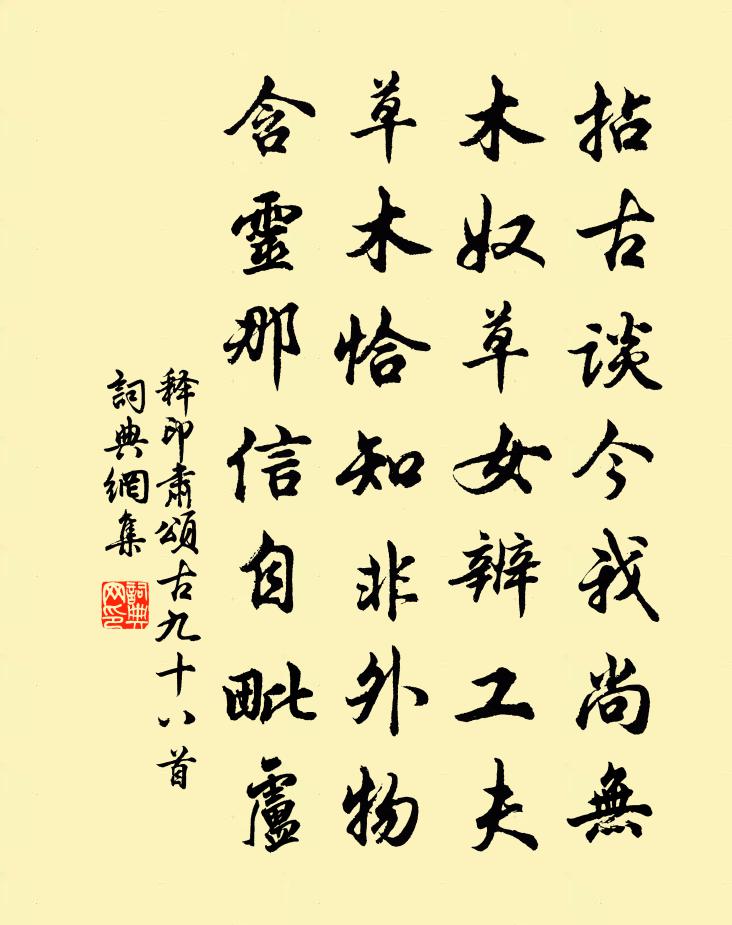 拈古談今我尚無
木奴草女辨工夫
草木恰知非外物
含靈那信自毗盧
释印肅頌古九十八首
詞典網集
詞典網印